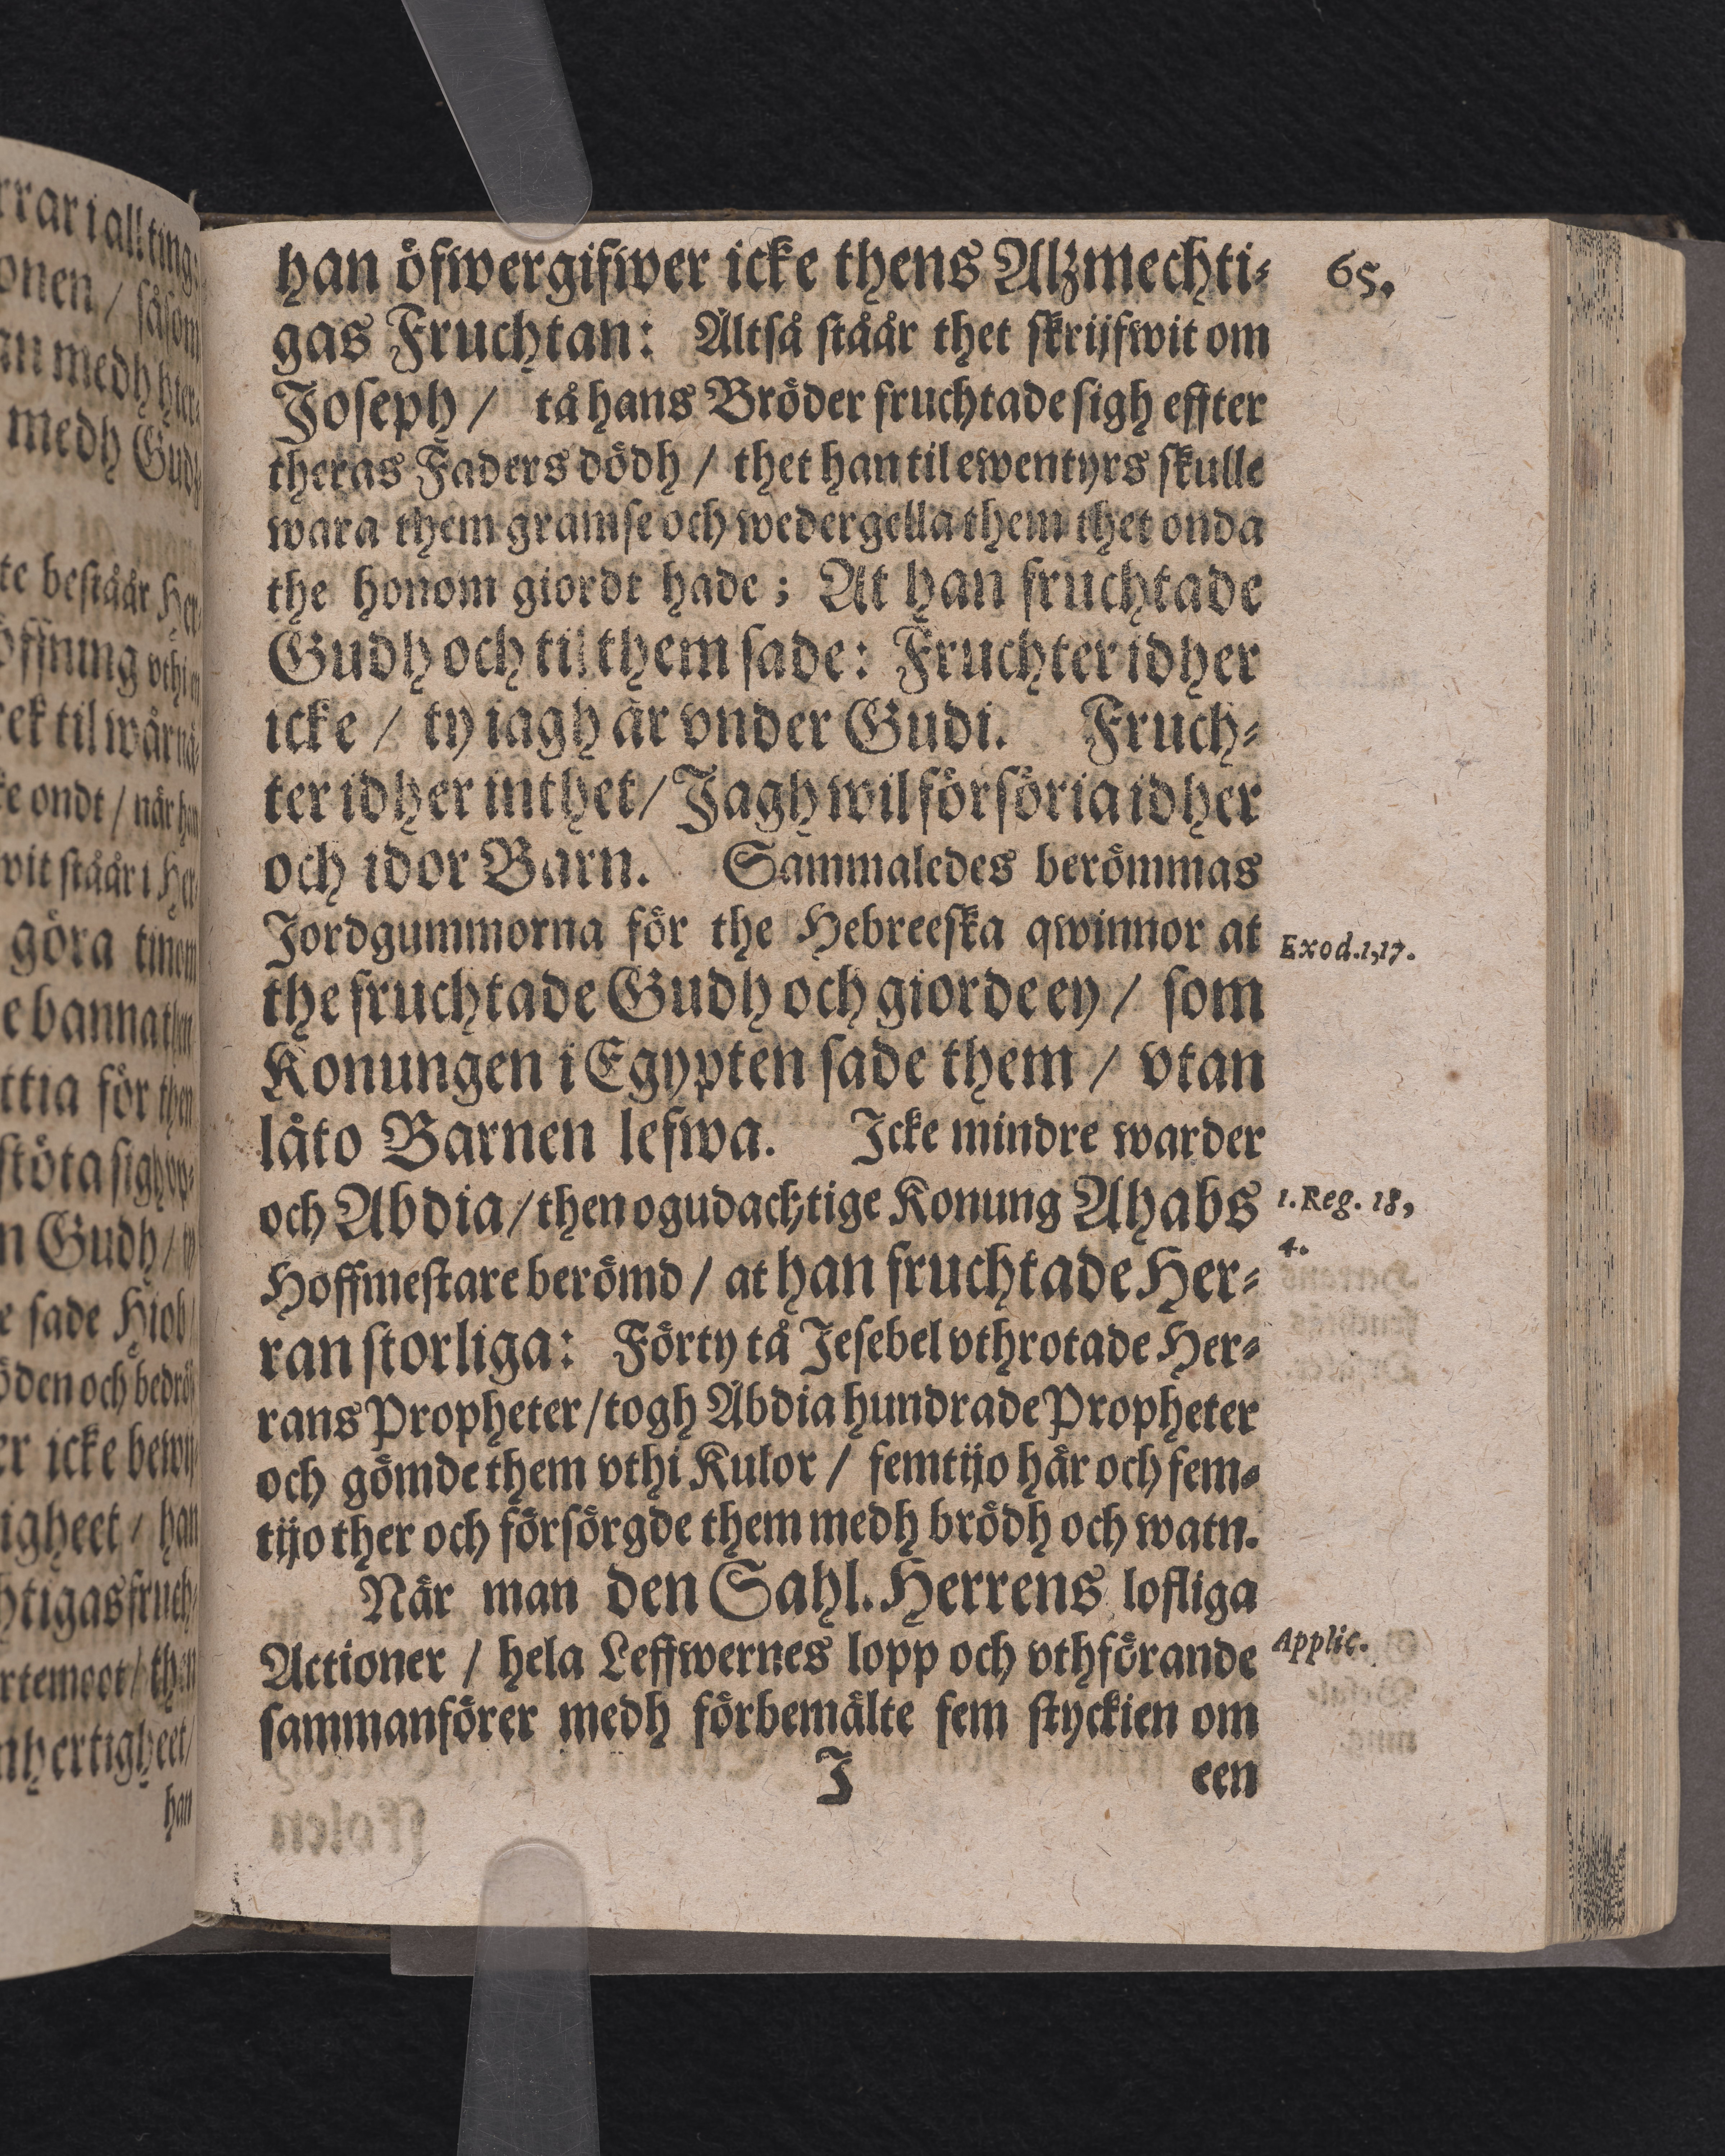 65.
han öfwergifwer icke thens Alzmechti-
gas Fruchtan: Altså ståår thet skrijfwit om
Joseph / tå hans Bröder fruchtade sigh effter
theras Faders dödh / thet han til ewentyrs skulle
wara them gramse och wedergella them thet onda
the honom giordt hade; At han fruchtade
Gudh och til them sade: Fruchter idher
icke / ty iagh är vnder Gudi. Fruch-
ter idher inthet / Jagh wil försöria idher
och idor Barn. Sammaledes berömmas
Jordgummorna för the Hebreeska qwinnor at
Exod.1,17.
the fruchtade Gudh och giorde ey / som
Konungen i Egypten sade them / vtan
låto Barnen lefwa. Icke mindre warder
och Abdia / then ogudachtige Konung Ahabs
1. Reg. 18,
4.
Hoffmestare berömd / at han fruchtade Her-
ran storliga: Förty tå Jesebel vthrotade Her-
rans Propheter / togh Abdia hundrade Propheter
och gömde them vthi Kulor / femtijo här och fem-
tijo ther och försörgde them medh brödh och watn.
När man den Sahl. Herrens lofliga
Actioner / hela Leffwernes lopp och vthförande
Applic.
sammanförer medh förbemälte fem styckien om
I een